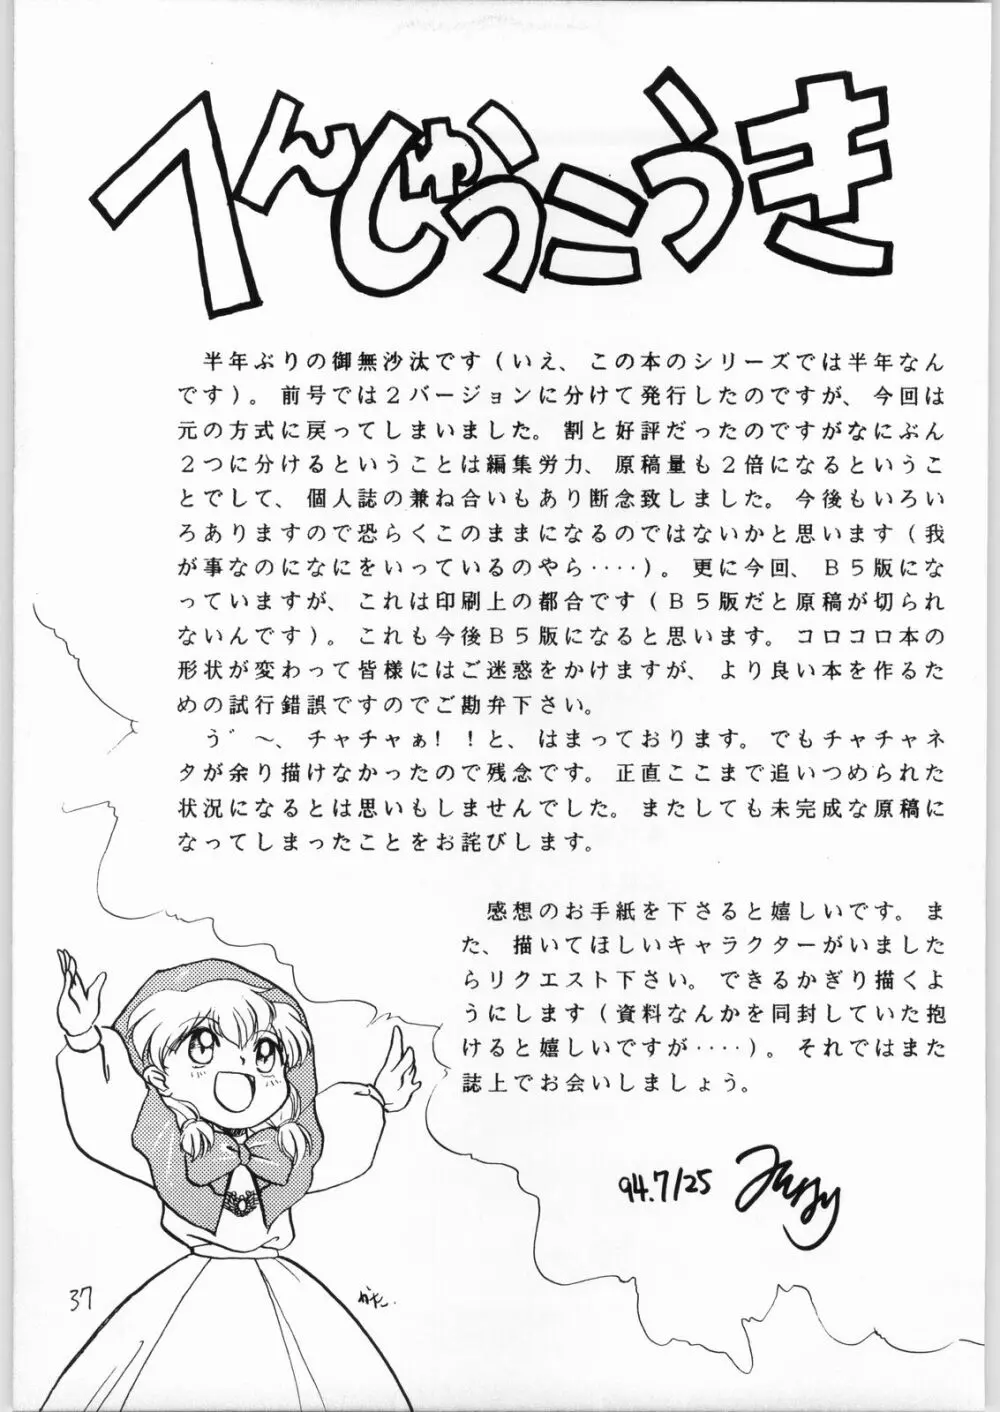 へんしゅうこうき
半年ぶりの御無沙汰です(いえ、この本のシリーズでは半年なん
です)。前号では2バージョンに分けて発行したのですが、今回は
元の方式に戻ってしまいました。割と好評だったのですがなにぶん
2つに分けるということは編集労力、原稿量も2倍になるというこ
とでして、個人誌の兼ね合いもあり断念致しました。今後もいろい
ろありますので恐らくこのままになるのではないかと思います(我
が事なのになにをいっているのやら‥‥)。更に今回、B5版にな
っていますが、これは印刷上の都合です(B5版だと原稿が切られ
ないんです)。これも今後B5版になると思います。コロコロ本の
形状が変わって皆様にはご迷惑をかけますが、より良い本を作るた
めの試行錯誤ですのでご勘弁下さい。
う゛〜、チャチャぁ!!と、はまっております。でもチャチャネ
タが余り描けなかったので残念です。正直ここまで追いつめられた
状況になるとは思いもしませんでした。またしても未完成な原稿に
なってしまったことをお詫びします。
感想のお手紙を下さると嬉しいです。ま
た、描いてほしいキャラクターがいました
らリクエスト下さい。できるかぎり描くよ
うにします(資料なんかを同封していた抱
けると嬉しいですが‥‥)。それではまた
誌上でお会いしましょう。
94.7/25
37